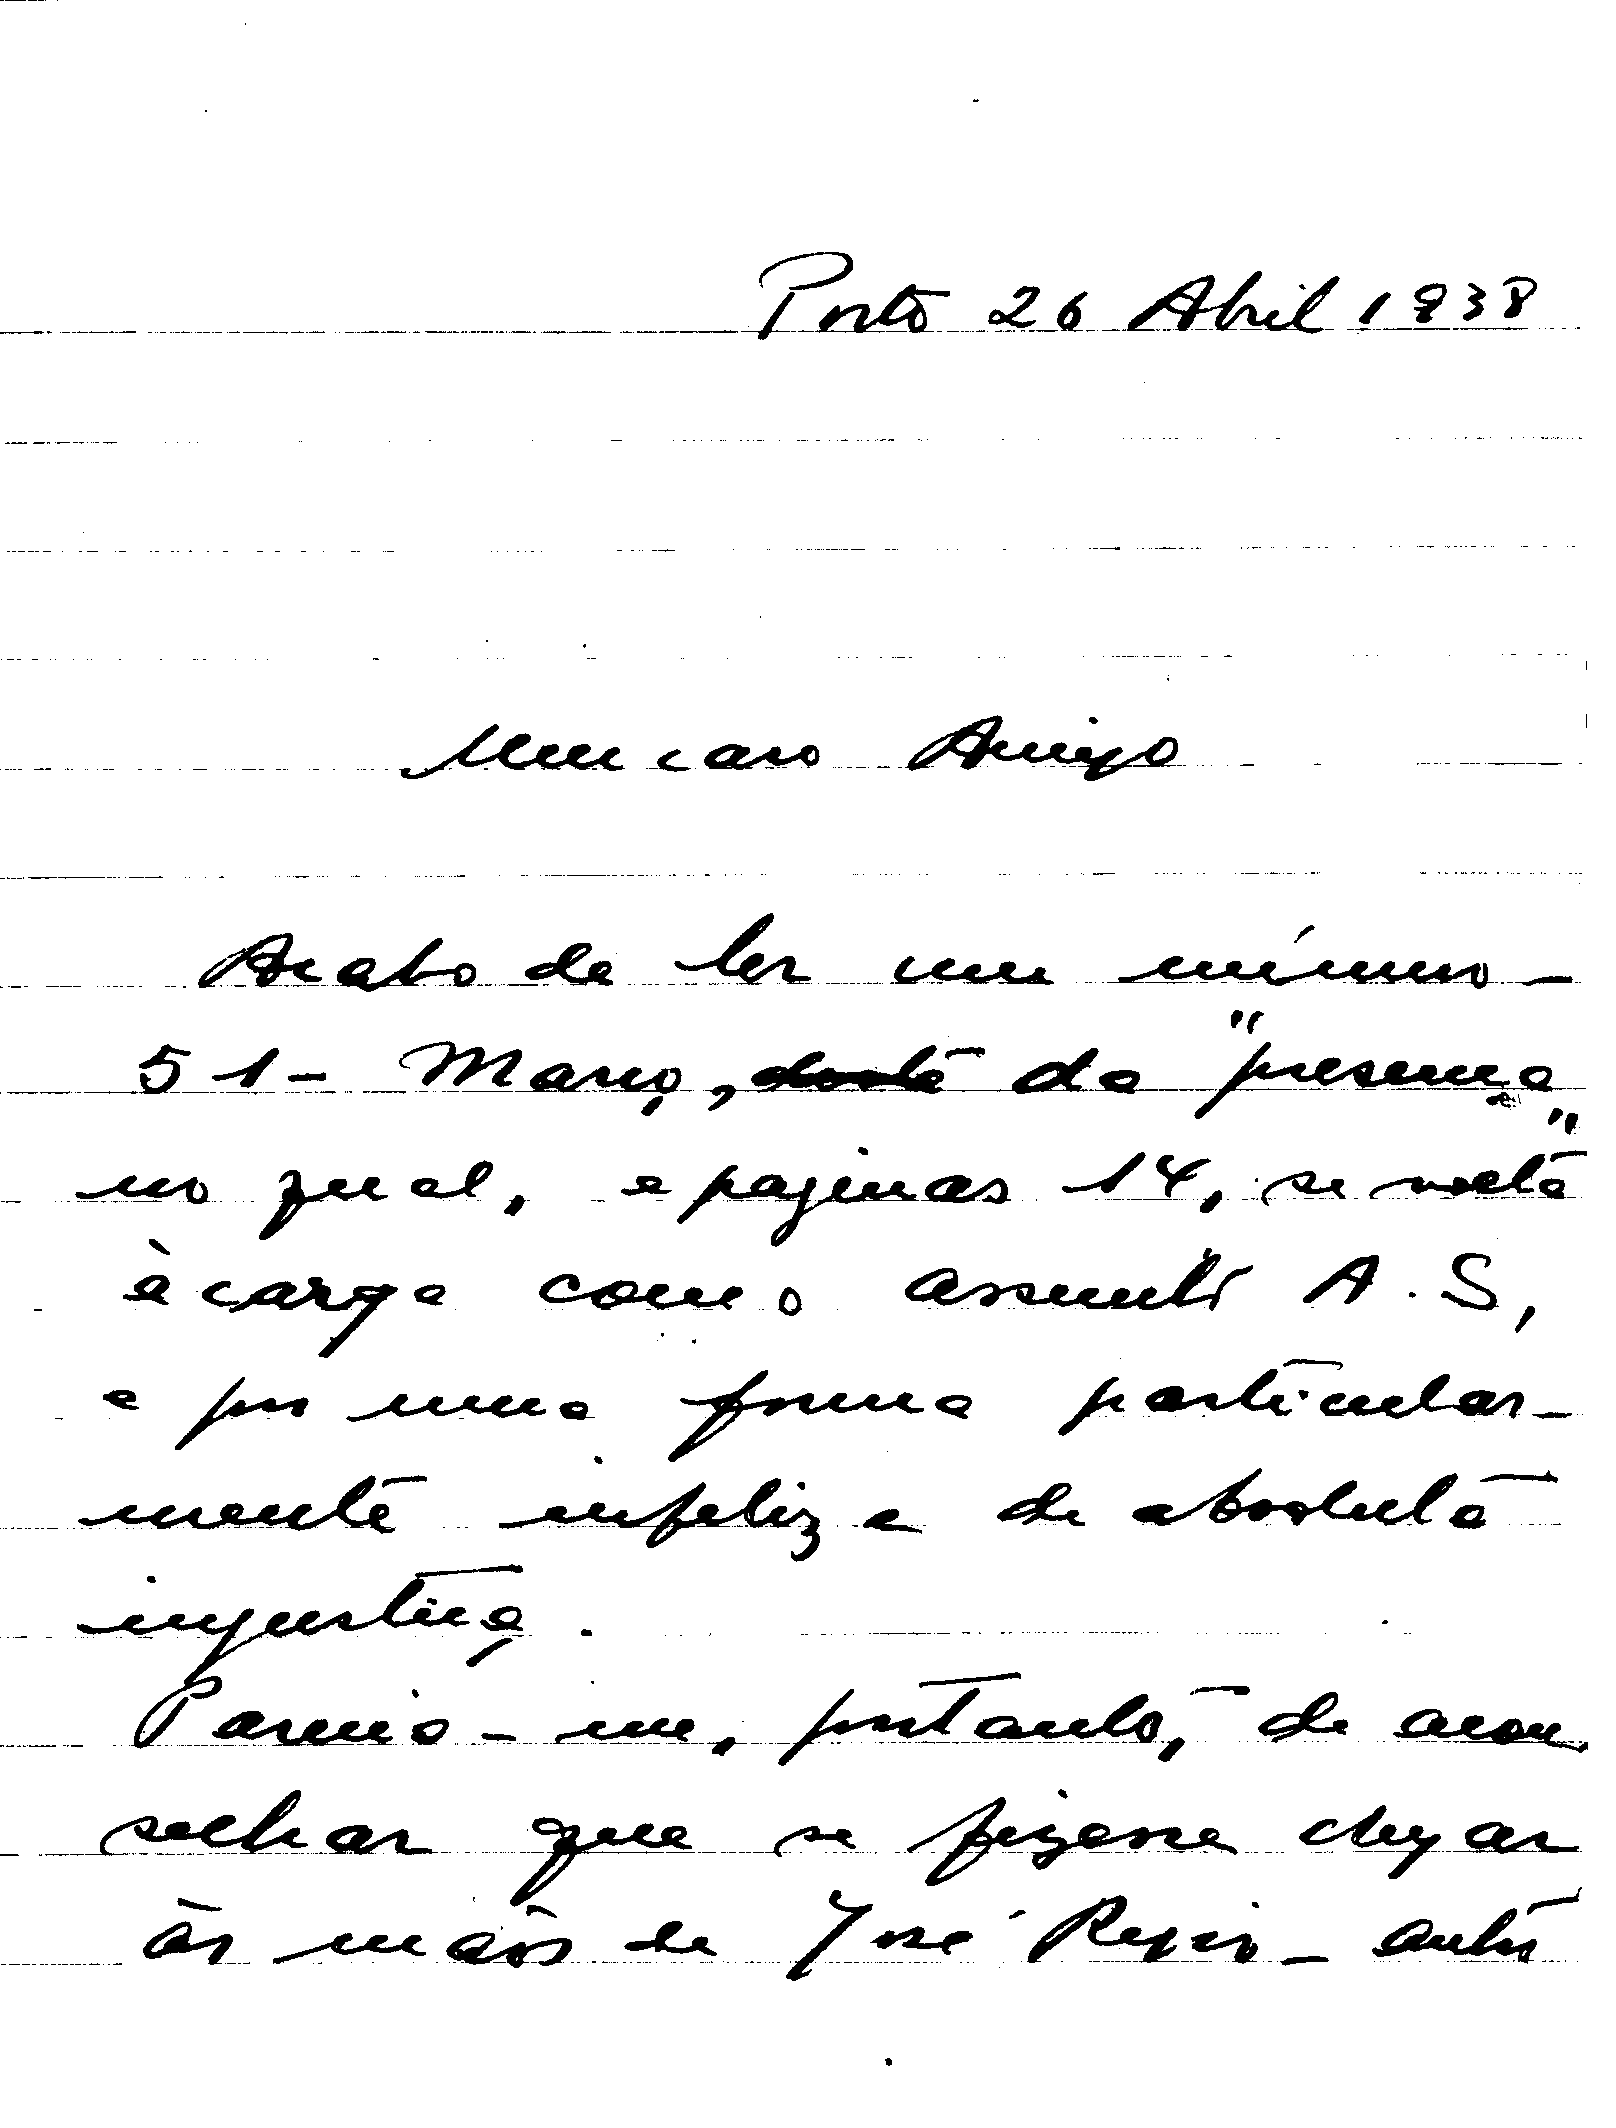 Porto 26 Abril 1938
Meu caro Amigo
Acabo de ler um número -
51 - Março, da "presença"
no qual, a paginas 14, se volta
à carga com o assunto A. S,
e por uma forma particular-
mente infeliz e de absoluta
injustiça.
Parecia-me, portanto, de acon
selhar que se fizesse chegar
às mãos de José Regio - autor